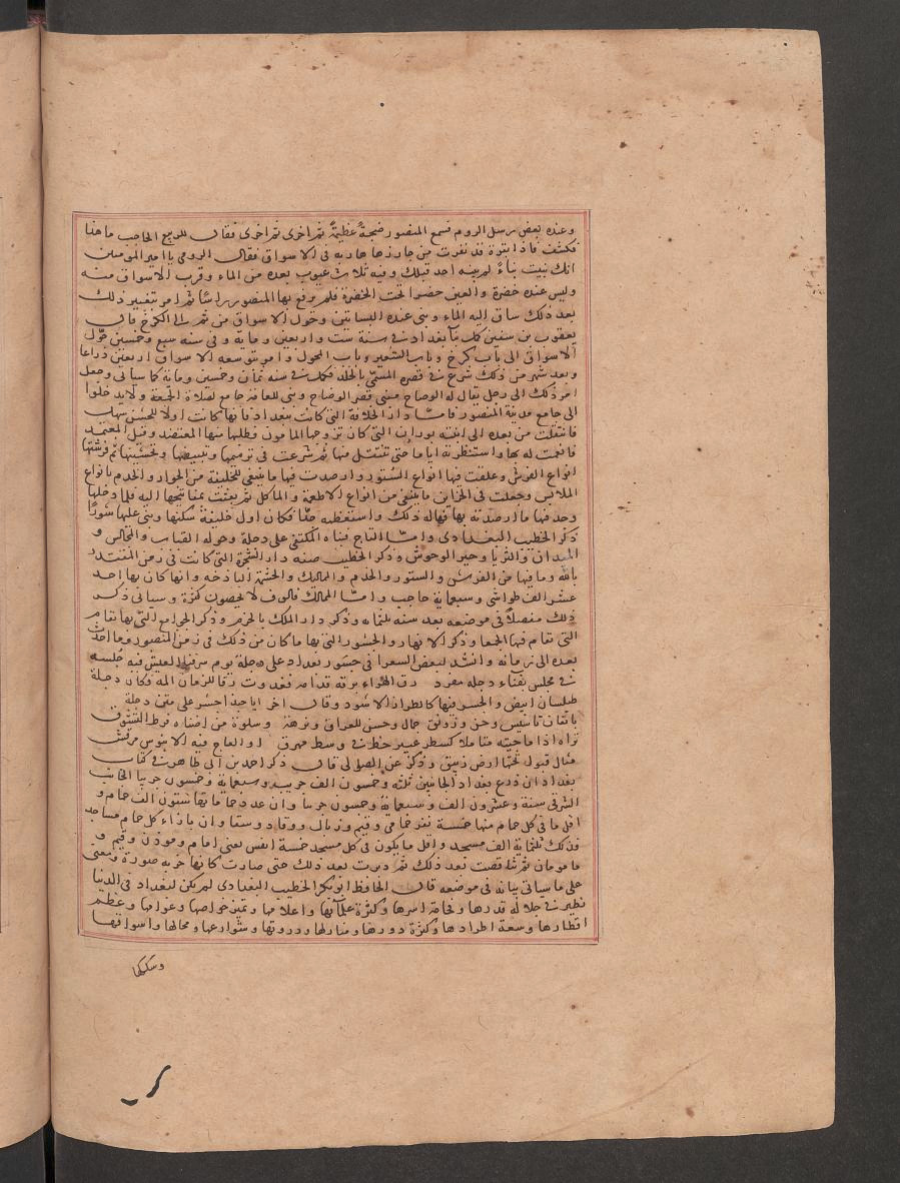 وعنده بعض رسل الروم فسمع المنصور ضجة عظيمة ثم اخرى ثم اخرى فقال للربيع الحاجب ما هذا
فكشف فاذا بقرة قد نفرت من جازرها هاربة فى الاسواق فقال الرومى يا امير المؤمنين
انك بنيت بناءً لم يبنه احد قبلك وفيه ثلاث عيوب بعده من الماء وقرب الاسواق منه
وليس عنده خضرة والعين خضرا تحب الخضرة فلم يرفع بها المنصور راسًا ثم امر بتغيير ذلك
بعد ذلك ساق اليه الماء وبنى عنده البساتين وحول الاسواق من ثم الى الكرخ قال
يعقوب بن سفين كمل بنا بغداد فى سنة ست واربعين وماية وفى سنه سبع وخمسين حول
الاسواق الى باب كرخ وباب الشعير وباب المحول وامر بتوسعه الاسواق اربعين ذراعا
وبعد شهر من ذلك شرع فى قصره المسمى بالخلد فكمل فى سنه ثمان وخمسين ومائة كما سياتى وجعل
امر ذلك الى رجل يقال له الوضاح فبنى قصر الوضاح وبنى للعامة جامع لصلاة الجمعة ولا يدخلوا
الى جامع مدينة المنصور فامّا دار الخلافة التى كانت ببغداد فانها كانت اولا للحسن بن سهل
فانتقلت من بعده الى ابنته بوران التى كان تزوجها المامون فطلبها منها المعتضد وقيل المعتمد
فانعمت له بها واستنظرته اياما حتى تنتقل منها ثم شرعت فى ترميمها وتبييضها وتحسينها ثم فرشتها
انواع الفرش وعلقت فيها انواع الستور وارصدت فيها ما ينبغى للخليفة من الجوار والخدم بانواع
الملابس وجعلت فى الخزاين ما ينبغى من انواع الاطعمة والماكل ثم بعثت بمفاتيحها اليه فلما دخلها
وجد فيها ما ارصدته بها فهاله ذلك واستعظمه جدًا فكان اول خليفة سكنها وبنى عليها سورًا
ذكر الخطيب البغدادى وامّا التاج فبناه المكتفى على دجلة وحوله القباب والمجالس و
الميدان والثريا وحير الوحوش وذكر الخطيب صفه دار الشجرة التى كانت فى زمن المقتدر
بالله وما فيها من الفرش والستور والخدم والمماليك والحشمة الباذخه وانها كان بها احد
عشر الف طواشى وسبعماية حاجب وامّا المماليك فالوف لا يحصون كثرة وسياتى ذكر
ذلك مفصلًا فى موضعه بعد سنه ثلثمايه وذكر دار الملك بالمخرم وذكر الجوامع التى بها تقام
التى تقام فيها الجمعا وذكر الانهار والجسور التى بها ما كان من ذلك فى زمن المنصور وما احدث
بعده الى زمانه وانشد لبعض الشعرا فى جسور بغداد على دجلة يوم سرقنا العيش فيه خلسه
فى مجلس بفناء دجله مفرد رق الهواء برقه قدامه فغدوت رقا للزمان فكان دجلة
طيلسان ابيض والجسر فيها كالطراز الاسود وقال اخر ايا حبذا جسر على متن دجلة
باتقان تاسيس وحسن ورونق جمال وحسن للعراق ونزهة وسلوة من اضناه فرط التشوق
تراه اذا ما جيته متاملا كسطر عبير خط فى وسط مهرق او العاج فيه الابنوس مرقش
مثال فيول تحتها ارض زيبق وذكر عن الصولى قال ذكر احد بن ابى طاهر فى كتاب
بغداد ان ذرع بغداد الجانبين ثلثه وخمسون الف جريب وسبعماية وخمسون جريبا الجانب
الشرقى ستة وعشرون الف وسبعماية وخمسون جريبا وان عدد حماماتها ستون الف حمام و
اقل ما فى كل حمام منها خمسة نفر حمامى وقيم وزبال ووقاد وسقا وان بازاء كل حمام مساجد
فذلك ثلثماية الف مسجد واقل ما يكون فى كل مسجد خمسة انفس يعنى امام وموذن وقيم و
مامومان ثم تناقصت بعد ذلك ثم دثرت بعد ذلك حتى صارت كانها خربه صورة ومعنى
على ما سياتى بيانه فى موضعه قال الحافظ ابو بكر الخطيب البغدادى لم يكن لبغداد فى الدنيا
نظير فى جلالة قدرها وفخامة امرها وكثرة علمائها واعلامها وتميز خواصها وعوامها وعظم
اقطارها وسعة اطرارها وكثرة دورها ومنازلها ودروبها وشوارعها ومحالها واسواقها
وسككها